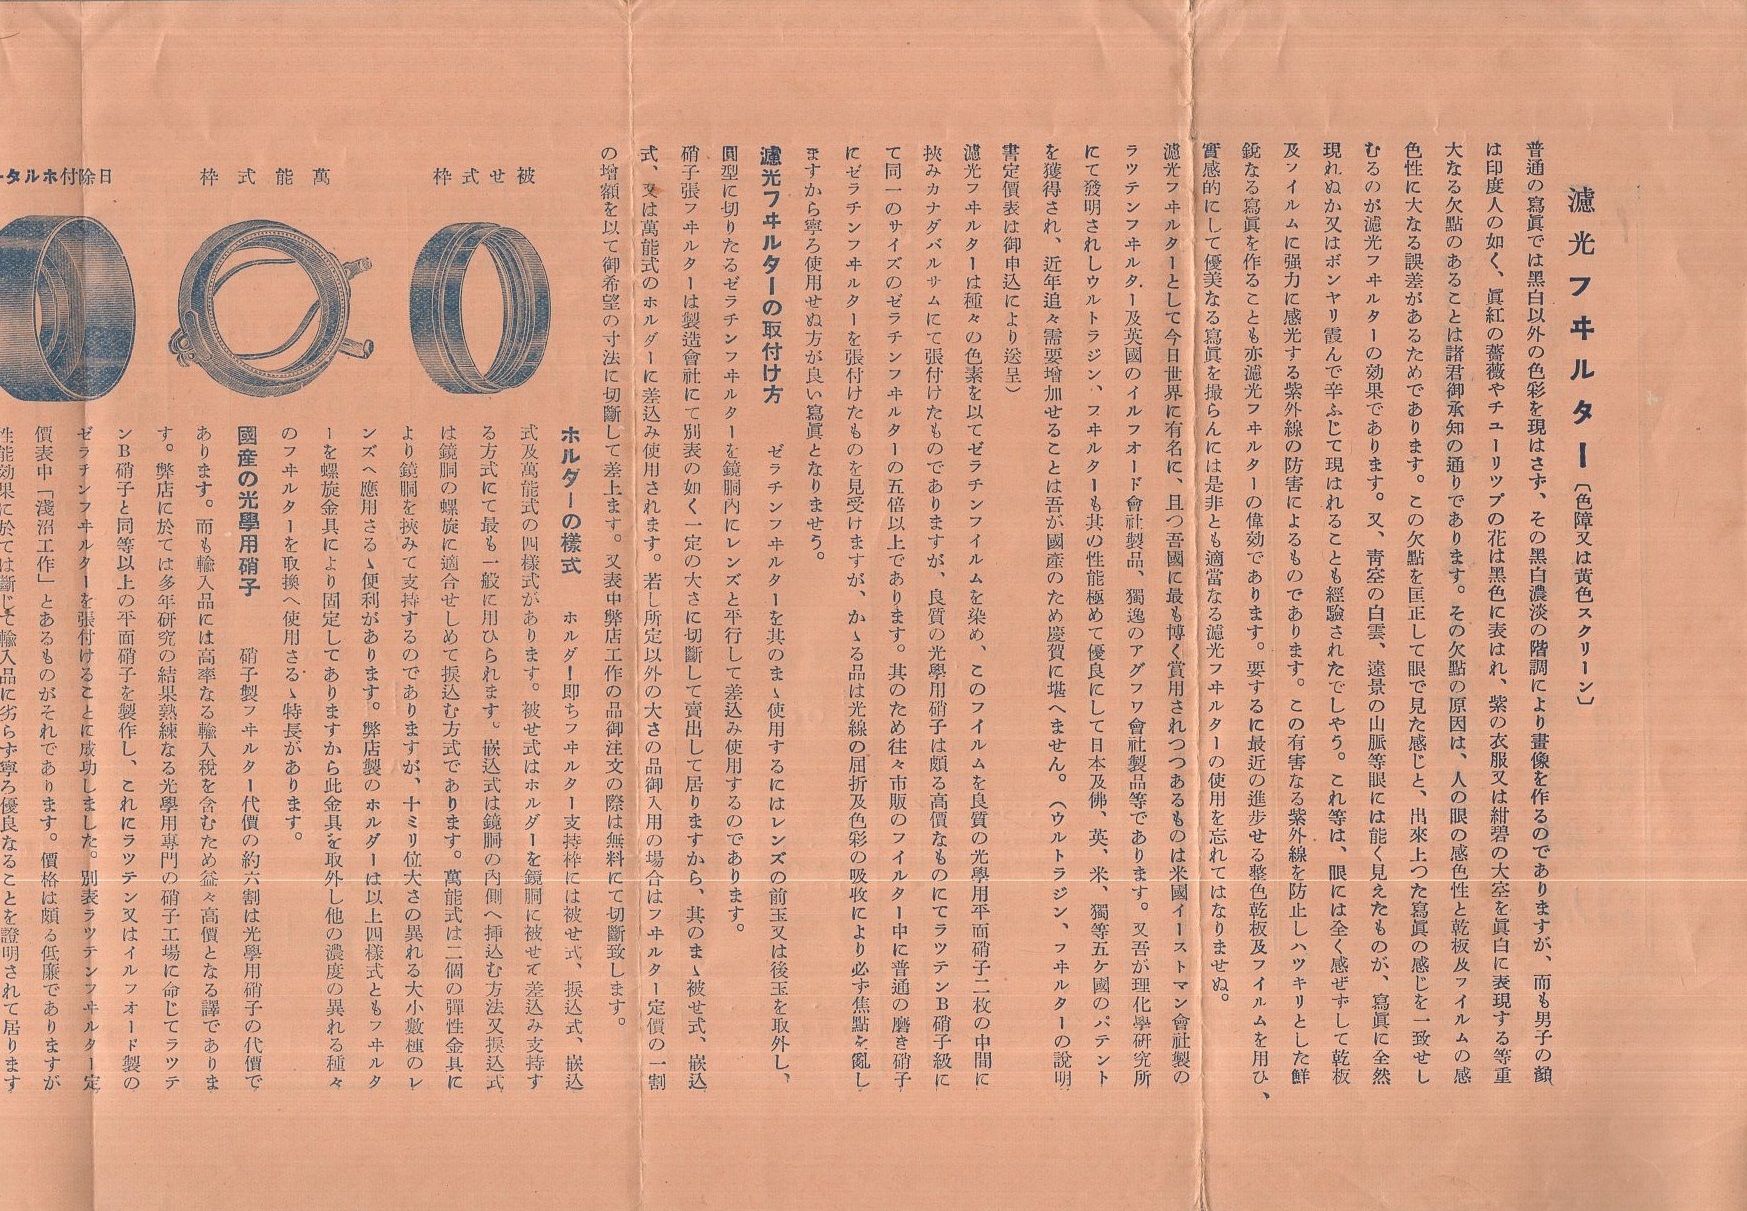 濾光フヰルター〔色障又は黃色スクリーン〕
普通の寫眞では黑白以外の色彩を現はさず、その黑白濃淡の階調により畫像を作るのでありますが、而も男子の顏
は印度人の如く、眞紅の薔薇やチユーリツプの花は黑色に表はれ、紫の衣服又は紺碧の大空を眞白に表現する等重
大なる欠點のあることは諸君御承知の通りであります。その欠點の原因は、人の眼の感色性と乾板及フイルムの感
色性に大なる誤差があるためであります。この欠點を匡正して眼で見た感じと、出來上つた寫眞の感じを一致せし
むるのが濾光フヰルターの効果であります。又、靑空の白雲、遠景の山脈等眼には能く見えたものが、寫眞に全然
現れぬか又はボンヤリ霞んで辛ふじて現はれることも經驗されたでしやう。これ等は、眼には全く感ぜずして乾板
及フイルムに强力に感光する紫外線の防害によるものであります。この有害なる紫外線を防止しハツキリとした鮮
銳なる寫眞を作ることも亦濾光フヰルターの偉効であります。要するに最近の進步せる整色乾板及フイルムを用ひ、
實感的にして優美なる寫眞を撮らんには是非とも適當なる濾光フヰルターの使用を忘れてはなりませぬ。
濾光フヰルターとして今日世界に有名に、且つ吾國に最も博く賞用されつつあるものは米國イーストマン會社製の
ラツテンフヰルター及英國のイルフオード會社製品、獨逸のアグフワ會社製品等であります。又吾が理化學硏究所
にて發明されしウルトラジン、フヰルターも其の性能極めて優良にして日本及佛、英、米、獨等五ケ國のパテント
を獲得され、近年追々需要增加せることは吾が國產のため慶賀に堪へません。（ウルトラジン、フヰルターの說明
書定價表は御申込により送呈）
濾光フヰルターは種々の色素を以てゼラチンフイルムを染め、このフイルムを良質の光學用平面硝子二枚の中間に
挾みカナダバルサムにて張付けたものでありますが、良質の光學用硝子は頗る高價なものにてラツテンB硝子級に
て同一のサイズのゼラチンフヰルターの五倍以上であります。其のため往々市販のフイルター中に普通の磨き硝子
にゼラチンフヰルターを張付けたものを見受けますが、かゝる品は光線の屈折及色彩の吸收により必ず焦點を亂し
ますから寧ろ使用せぬ方が良い寫眞となりませう。
濾光フヰルターの取付け方　ゼラチンフヰルターを其のまゝ使用するにはレンズの前玉又は後玉を取外し、
圓型に切りたるゼラチンフヰルターを鏡胴內にレンズと平行して差込み使用するのであります。
硝子張フヰルターは製造會社にて別表の如く一定の大さに切斷して賣出して居りますから、其のまゝ被せ式、嵌込
式、又は萬能式のホルダーに差込み使用されます。若し所定以外の大さの品御入用の場合はフヰルター定價の一割
の增額を以て御希望の寸法に切斷して差上ます。又表中弊店工作の品御注文の際は無料にて切斷致します。
被せ式枠
萬能式枠
日除付ホルター
ホルダーの樣式　ホルダー卽ちフヰルター支持枠には被せ式、捩込式、嵌込
式及萬能式の四樣式があります。被せ式はホルダーを鏡胴に被せて差込み支持す
る方式にて最も一般に用ひられます。嵌込式は鏡胴の內側へ挿込む方法又捩込式
は鏡胴の螺旋に適合せしめて捩込む方式であります。萬能式は二個の彈性金具に
より鏡胴を挾みて支持するのでありますが、十ミリ位大さの異れる大小數種のレ
ンズへ應用さるゝ便利があります。弊店製のホルダーは以上四樣式ともフヰルタ
ーを螺旋金具により固定してありますから此金具を取外し他の濃度の異れる種々
のフヰルターを取換へ使用さるゝ特長があります。
國產の光學用硝子　硝子製フヰルター代價の約六割は光學用硝子の代價で
あります。而も輸入品には高率なる輸入稅を含むため益々高價となる譯でありま
す。弊店に於ては多年硏究の結果熟練なる光學用專門の硝子工場に命じてラツテ
ンB硝子と同等以上の平面硝子を製作し、これにラツテン又はイルフオード製の
ゼラチンフヰルターを張付けることに成功しました。別表ラツテンフヰルター定
價表中「淺沼工作」とあるものがそれであります。價格は頗る低廉でありますが
性能効果に於ては斷じて輸入品に劣らず寧ろ優良なることを證明されて居ります